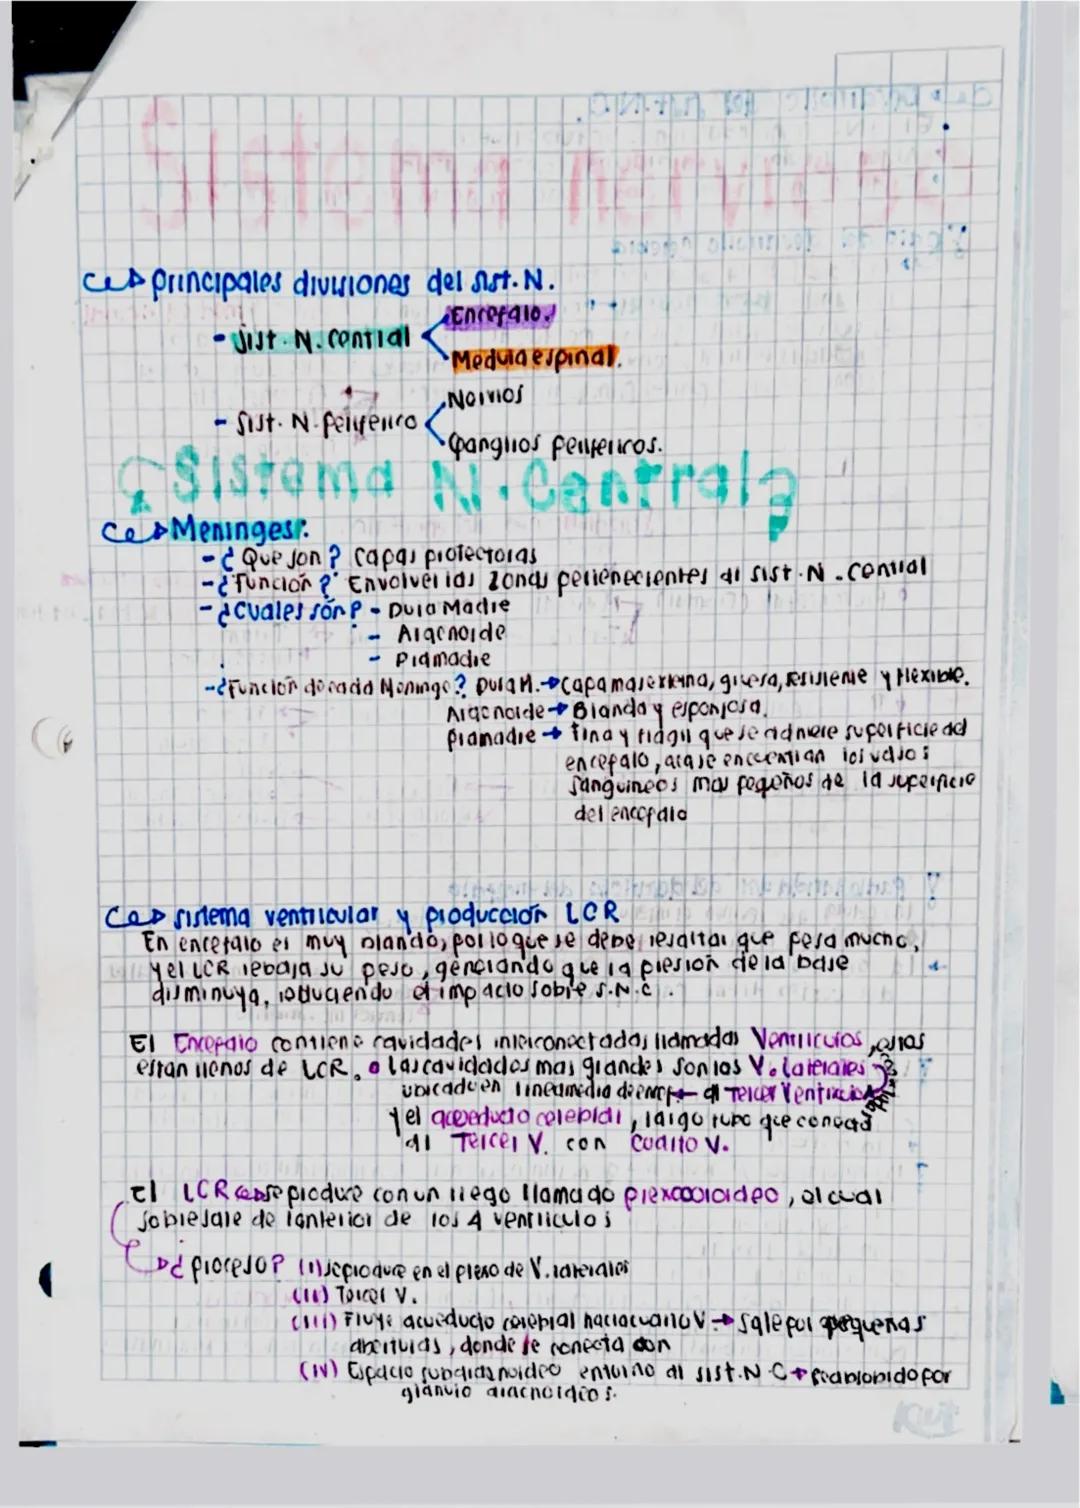 Sistema nervioso
principales divisiones del sist. N.
- Sist. N. Central
Encefalo.
Medula espinal.
- Sist. N. Periferico
Nervios
Ganglios perifericos.
¿Sistema N. Central?
Meninges:
- ¿Que son? Capas protectoras
- ¿Función? Envolver las zonas pertenecientes al sist. N. central
- ¿Cuales són? - Dura Madre
- Aracnoide
- Piamadre
- ¿Función de cada Meninge? Dura M. → Capa mas externa, gruesa, resistente y flexible.
Aracnoide → Blanda y esponjosa.
Piamadre → fina y fragil que se adhiere superficie del
encefalo, acá se encuentran los vasos
sanguineos mas pequeños de la superficie
del encefalo
sistema ventricular y producción LCR
En encefalo es muy blando, por lo que se debe resaltar que pesa mucho,
y el LCR rebaja su peso, generando que la presion de la base
disminuya, reduciendo el impacto sobre S.N.C.
El Encefalo contiene cavidades interconectadas llamadas Ventriculos, estos
estan llenos de LCR. las cavidades mas grandes son los V. laterales
ubicado en linea media de encf al Tercer Ventriculo
y el acueducto celebral, largo tubo que conecta
al Tercer V. con Cuarto V.
El LCR se produce con un riego llamado plexocoroideo, el cual
sobresale de lanterior de los 4 ventriculos
¿proceso? (I) se produce en el plexo de V. laterales
(II) Tercer V.
(III) Fluye acueducto cerebral hacia cuarto V → sale por pequeñas
aberturas, donde se conecta con
(IV) Espacio subaracnoideo entorno al sist. N. C → reabsobido por
aracnoideos.